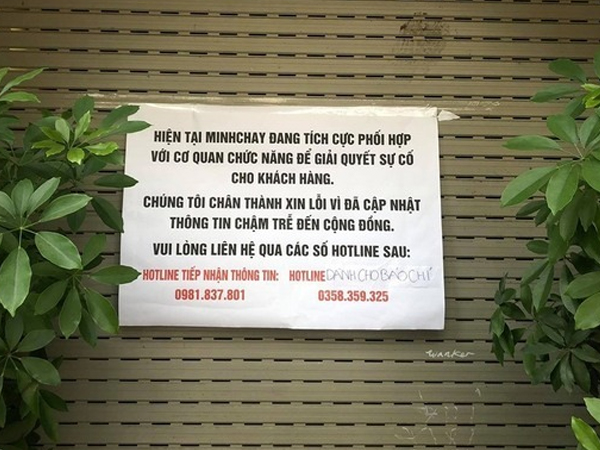 HIỆN TẠI MINHCHAY ĐANG TÍCH CỰC PHỐI HỢP
VỚI CƠ QUAN CHỨC NĂNG ĐỂ GIẢI QUYẾT SỰ CỐ
CHO KHÁCH HÀNG.
CHÚNG TÔI CHÂN THÀNH XIN LỖI VÌ ĐÃ CẬP NHẬT
THÔNG TIN CHẬM TRỄ ĐẾN CỘNG ĐỒNG.
VUI LÒNG LIÊN HỆ QUA CÁC SỐ HOTLINE SAU:
HOTLINE TIẾP NHẬN THÔNG TIN: HOTLINE DÀNH CHO BÁO CHÍ
0981.837.801 0358.359.325
wanker